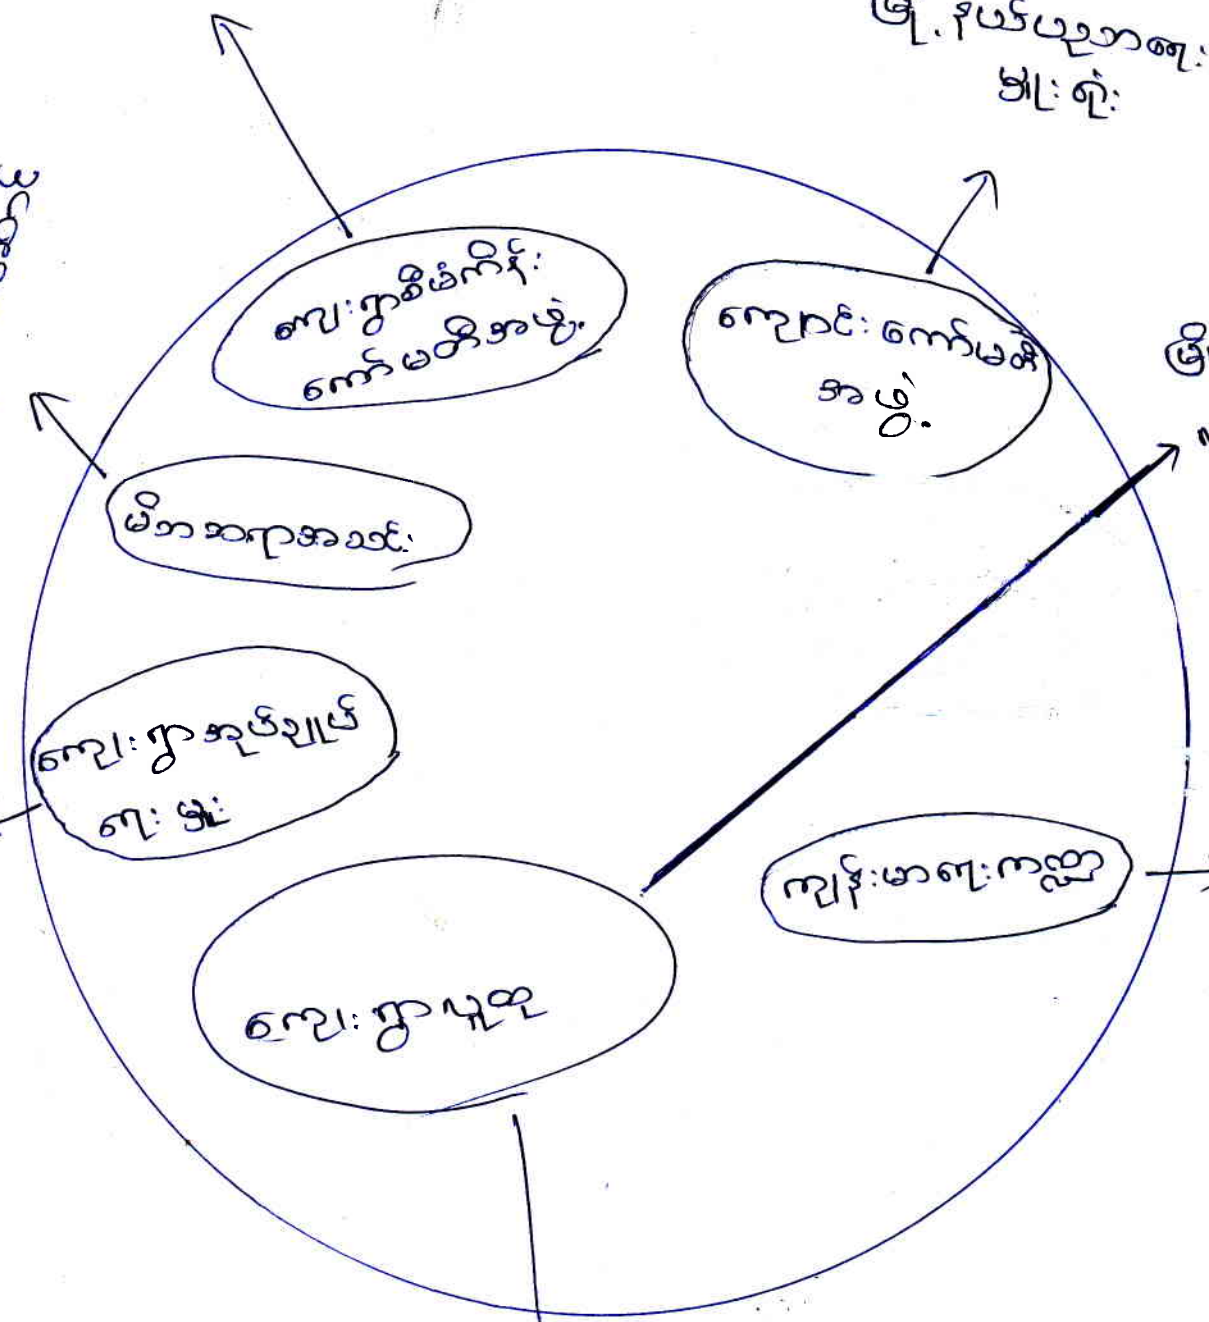 မြို့နယ်ပညာရေး
မှူးရုံး
ကျေးရွာစီမံကိန်း
ကော်မတီအဖွဲ့
ကျောင်းကော်မတီ
အဖွဲ့
မိဘဆရာအသင်း
ကျေးရွာအုပ်ချုပ်
ရေးမှူး
ကျန်းမာရေးကဏ္ဍ
ကျေးရွာလူထု